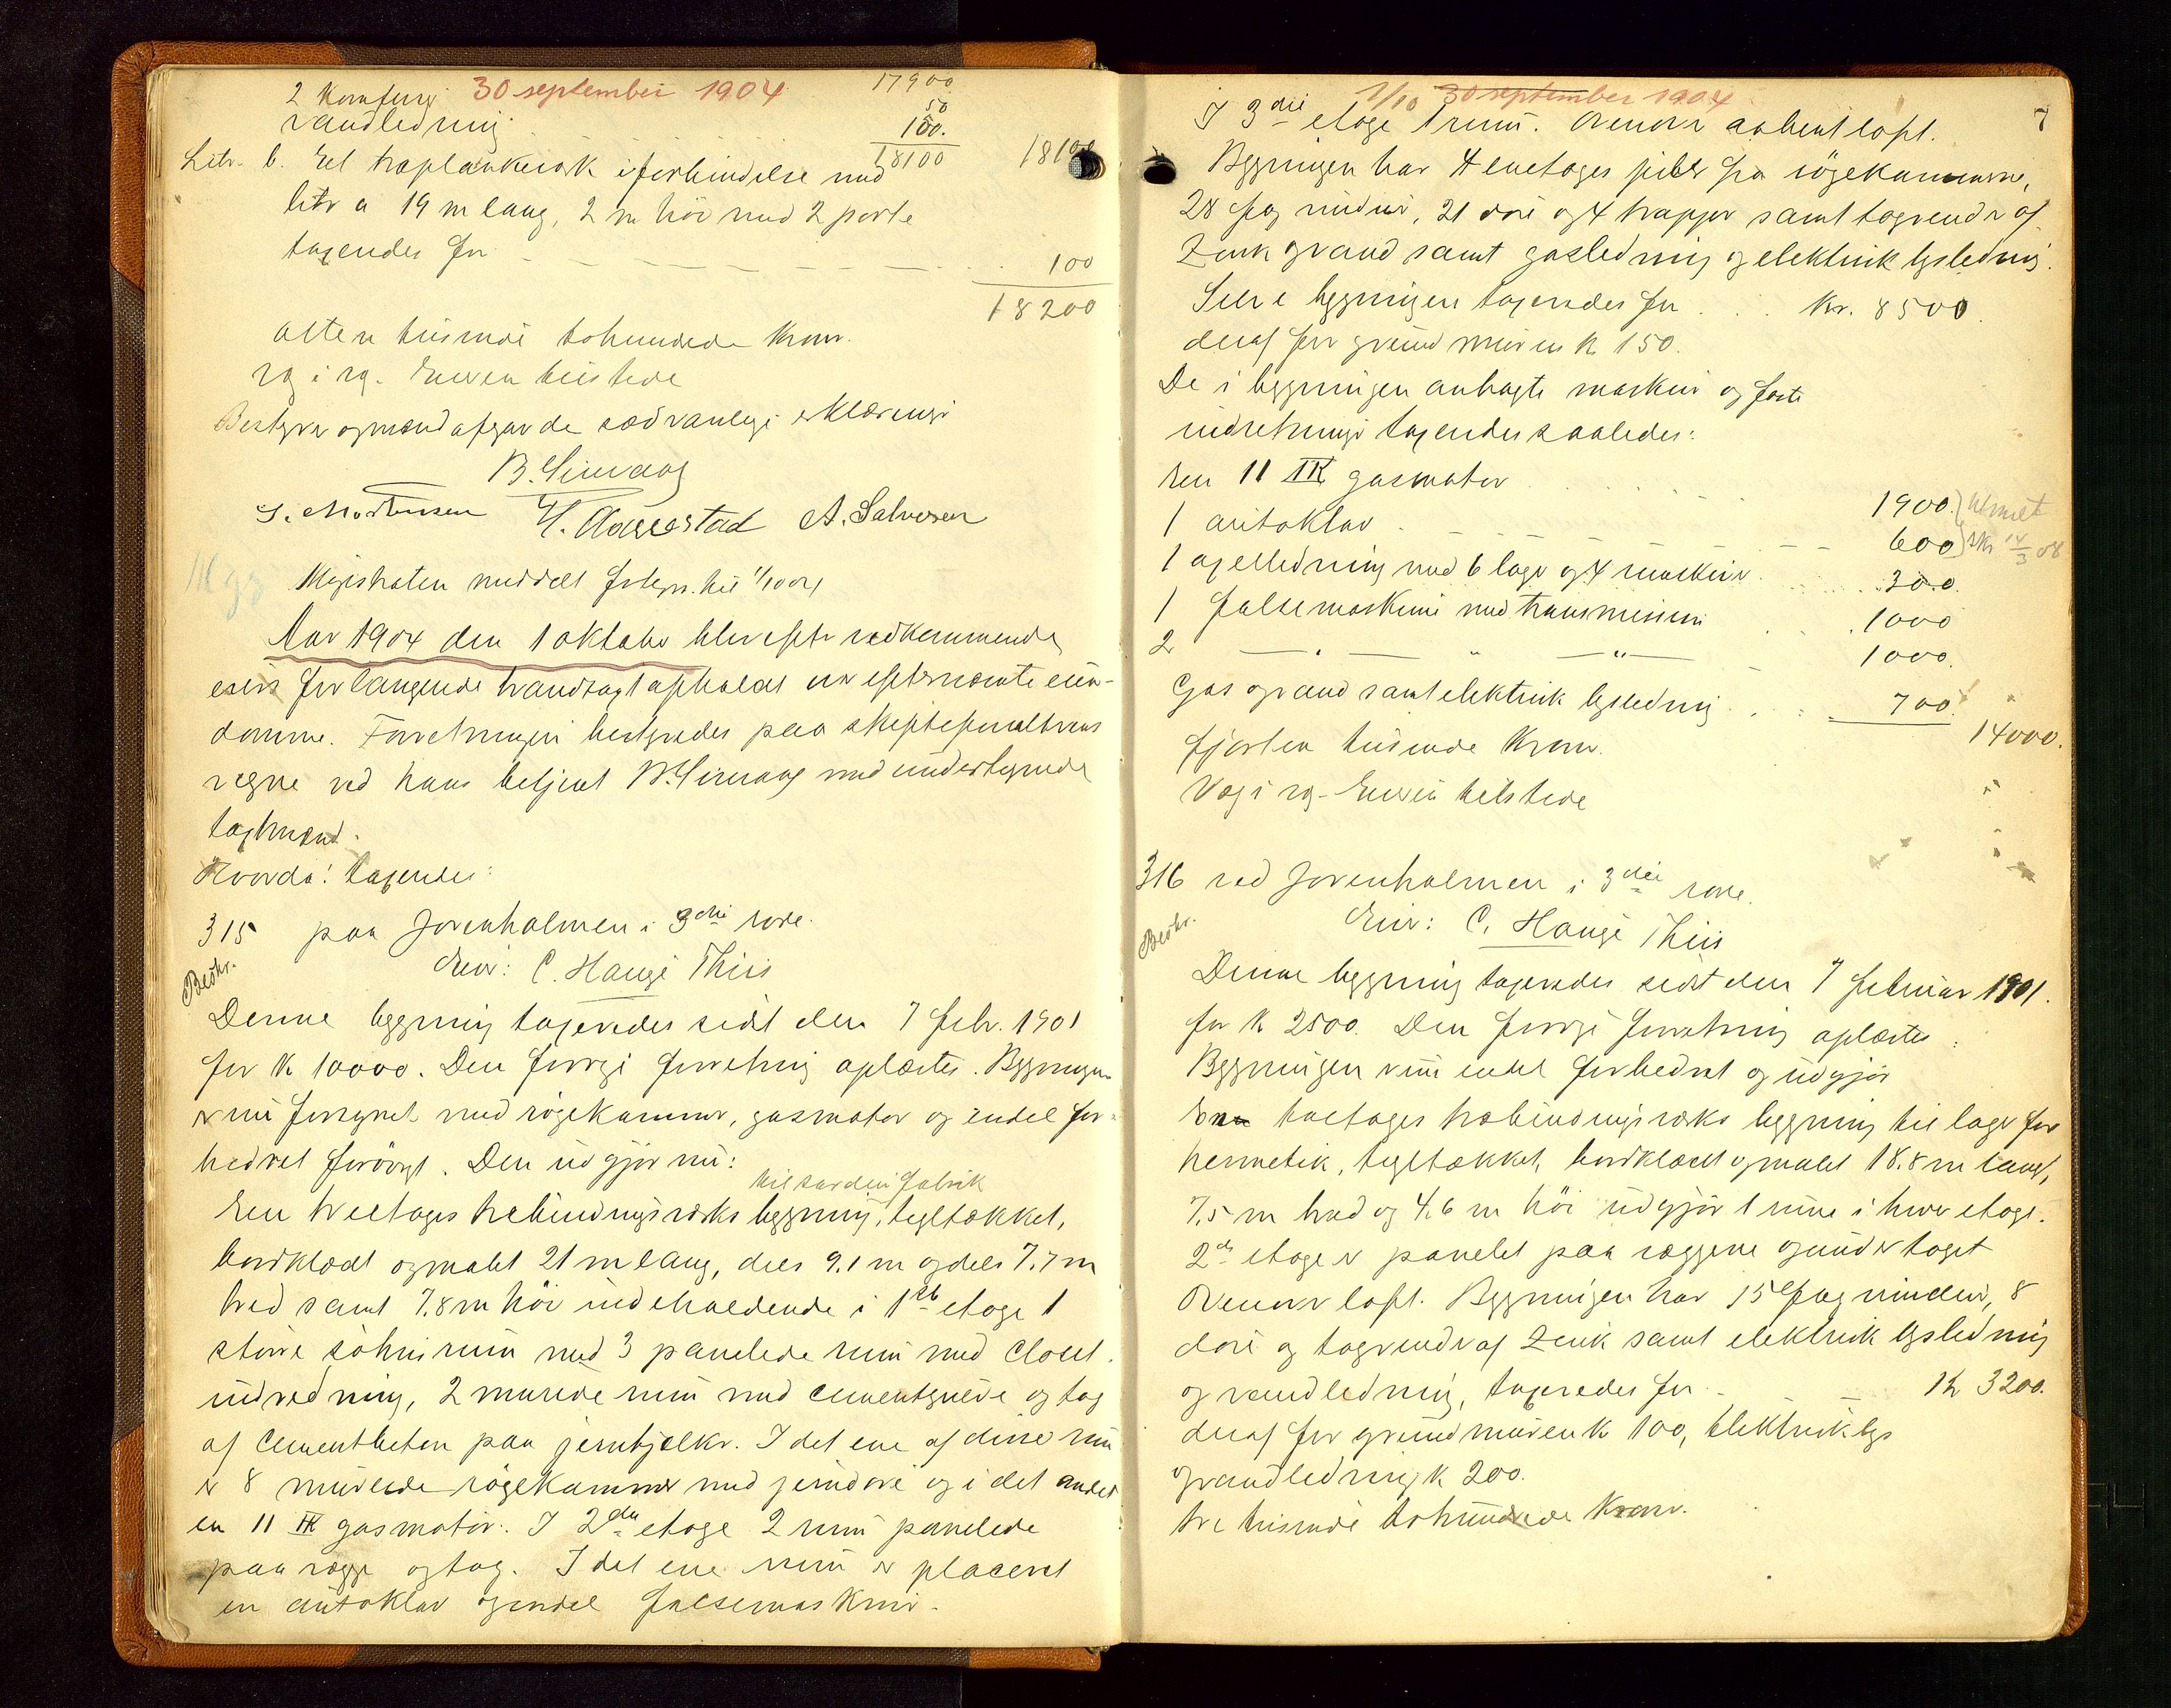 30 september 1904
17900
2 Komfyrer
50
Vandledning
150.
18100
18100
Litr. b. Et træplankeværk i forbindelse med
litr a 19 m lang, 2 m höi med 2 porte
taxeredes for
100
18200
atten tusinde tohundrede Kroner.
Eieren tilstede
Bestyrer og mænd afgav de sædvanlige erklæringer
B. Simvaag
S. Mortensen H. Aarrestad A. Salvesen
Magistraten meddelt
Aar 1904 den 1 oktober blev efter vedkommende
eiers forlangende brandtagt afholdt over efternævnte eien-
domme. Forretningen bestyredes paa
vegne ved hans betjent B. Simvaag med undertegnede
tagtmænd.
Hvorda! taxeredes:
315 paa Jorenholmen i 3die rode.
Eier: C. Hauge Thiis
Beskr.
Denne bygning taxeredes sidst den 7 febr. 1901
for K 10000. Den forrige forretning oplæstes. Bygningen
er nu forsynet med rögekammer, gasmotor og endel for-
bedret forövrigt. Den udgjör nu:
til sardinfabrik
En treetages trebindingsværks bygning, tegltækket,
bordklædt og malet 21 m lang, dels 9.1 m og dels 7.7 m
bred samt 7.8 m höi indeholdende i 1ste etage 1
större rum med 3 panelede rum med closet
indredning, 2 murede rum med cementgulve og tag
af cementbeton paa jernbjelker. I det ene af disse rum
er 8 murede rögekammer med jerndöre og i det andet
en 11 HK gasmotor. I 2den etage 2 rum panelede
paa vægge og tag. I det ene rum er placeret
en autoklav og endel falsemaskiner.
1/10 30 september 1904
7
I 3die etage 1 rum. Ovenover aabent loft.
Bygningen har 4 enetages piber fra rögekammerne,
28 fag vinduer, 21 döre og 4 trapper samt tagrender af
Zink og vand samt gasledning og elektrisk lysledning.
Selve bygningen taxeredes for Kr. 8500
deraf for grundmuren K 150.
De i bygningen anbragte maskiner og faste
indretninger taxeredes saaledes:
En 11 HK gasmotor
1900.
1 autoklav
600
1 axelledning med 6 lager og 4 maskiner
300.
1 falsemaskine med transmission
1000
2 — " — " — " —
1000.
Gas og vand samt elektrisk lysledning
700
14000.
fjorten tusinde Kroner.
Eieren tilstede
316 ved Jorenholmen i 3die rode.
Eier: C. Hauge Thiis
Beskr.
Denne bygning taxeredes sidst den 7 februar 1901.
for K 2500. Den forrige forretning oplæstes:
Bygningen er nu endel forbedret og udgjör
En toetages træbindingsværks bygning til lager for
hermetik, tegltækket, bordklædt og malet 18.8 m lang,
7.5 m bred og 4.6 m höi udgjör 1 rum i hver etage.
2den etage er panelet paa væggene og under taget
Ovenover loft. Bygningen har 15 fag vinduer, 8
döre og tagrender af Zink samt elektrisk lysledning
og vandledning, taxeredes for K 3200.
deraf for grundmuren K 100, Elektrisk lys
og vandledning K 200.
tre tusinde tohundrede Kroner.